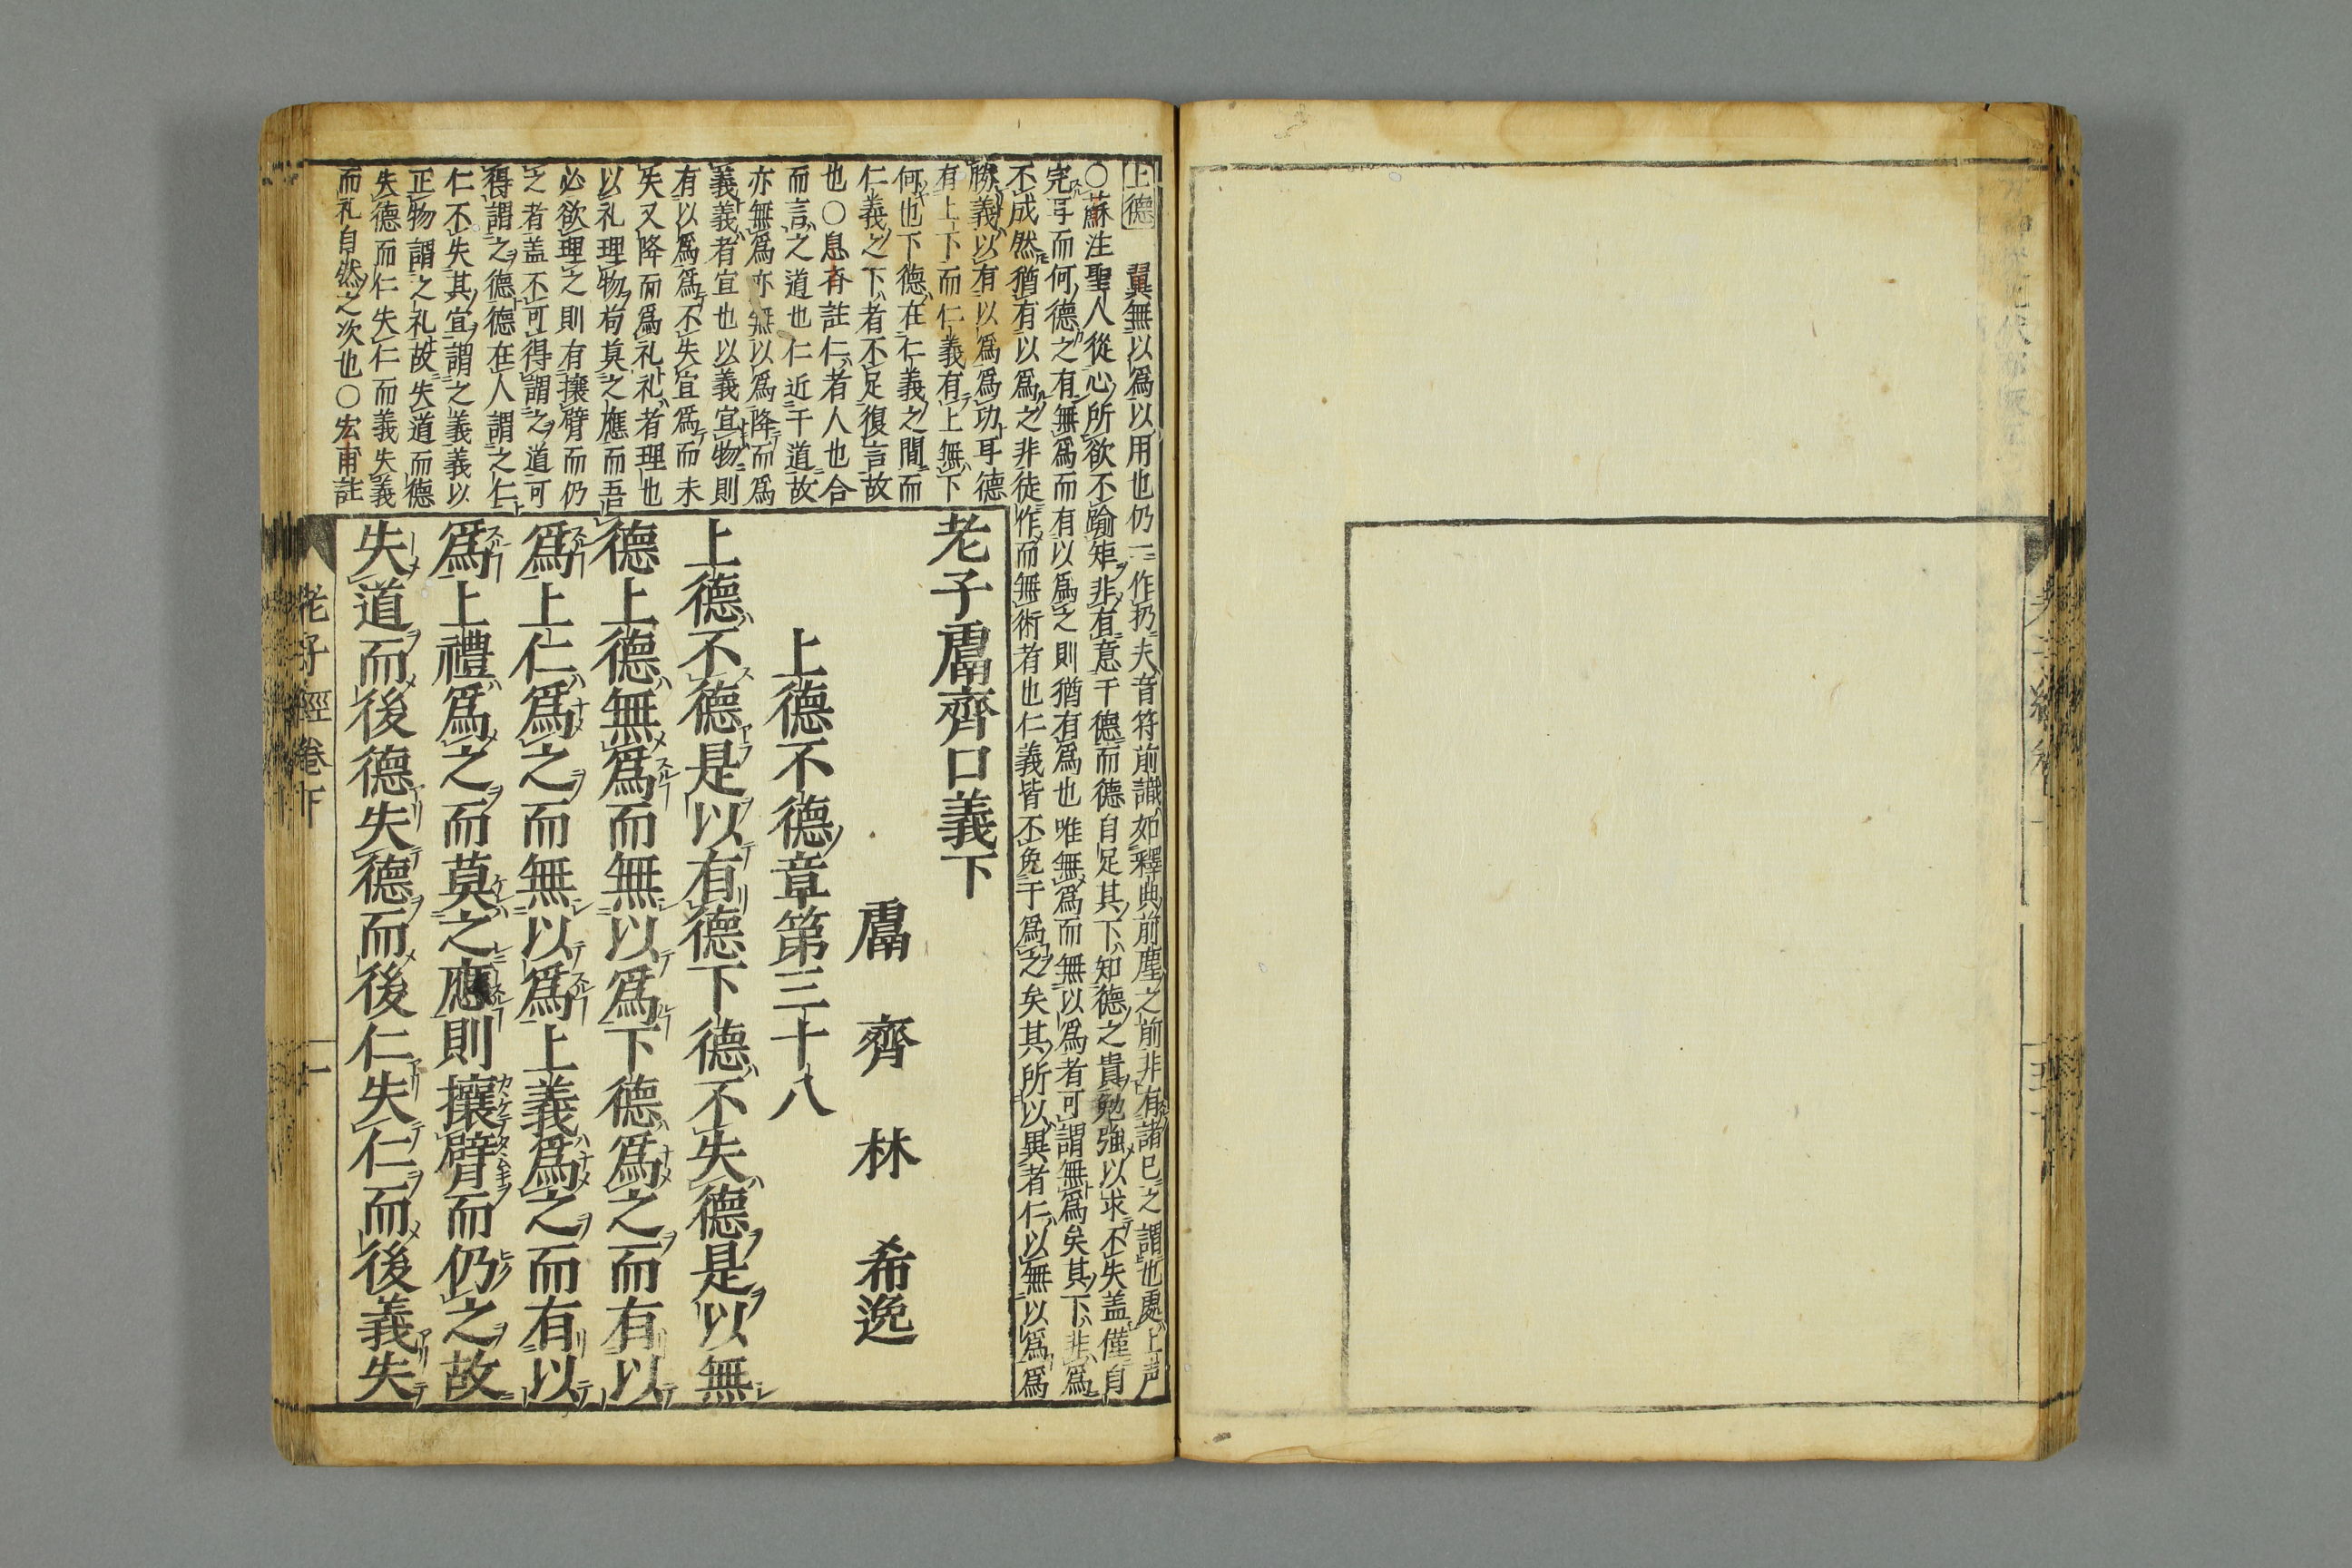 上德　翼無以爲以用也仍一作扔夫音符前識如釋典前塵之前非有諸已之謂也處上声
○蘇注聖人從心所欲不踰矩非有意于德而德自足其下知德之貴勉強以求不失盖僅自
完耳而何德之有無爲而有以爲之則猶有爲也唯無爲而無以爲者可謂無爲矣其下非爲
不成然猶有以爲之非徒作而無術者也仁義皆不免于爲之矣其所以異者仁以無以爲爲
勝義以有以爲爲功耳德
有上下而仁義有上無下
何也下德在仁義之間而
仁義之下者不足復言故
也○息斉註仁者人也合
而言之道也仁近于道故
亦無爲亦無以爲降而爲
義義者宜也以義宜物則
有以爲爲不失宜爲而未
失又降而爲礼礼者理也
以礼理物苟莫之應而吾
必欲理之則有攘臂而仍
之者盖不可得謂之道可
得謂之德德在人謂之仁
仁不失其宜謂之義義以
正物謂之礼故失道而德
失德而仁失仁而義失義
而礼自然之次也○宏甫註
老子鬳齊口義下
鬳齊林希逸
上德不德章第三十八
上德不德是以有德下德不失德是以無
德上德無爲而無以爲下德爲之而有以
爲上仁爲之而無以爲上義爲之而有以
爲上禮爲之而莫之應則攘臂而仍之故
失道而後德失德而後仁失仁而後義失
老子經卷下　一